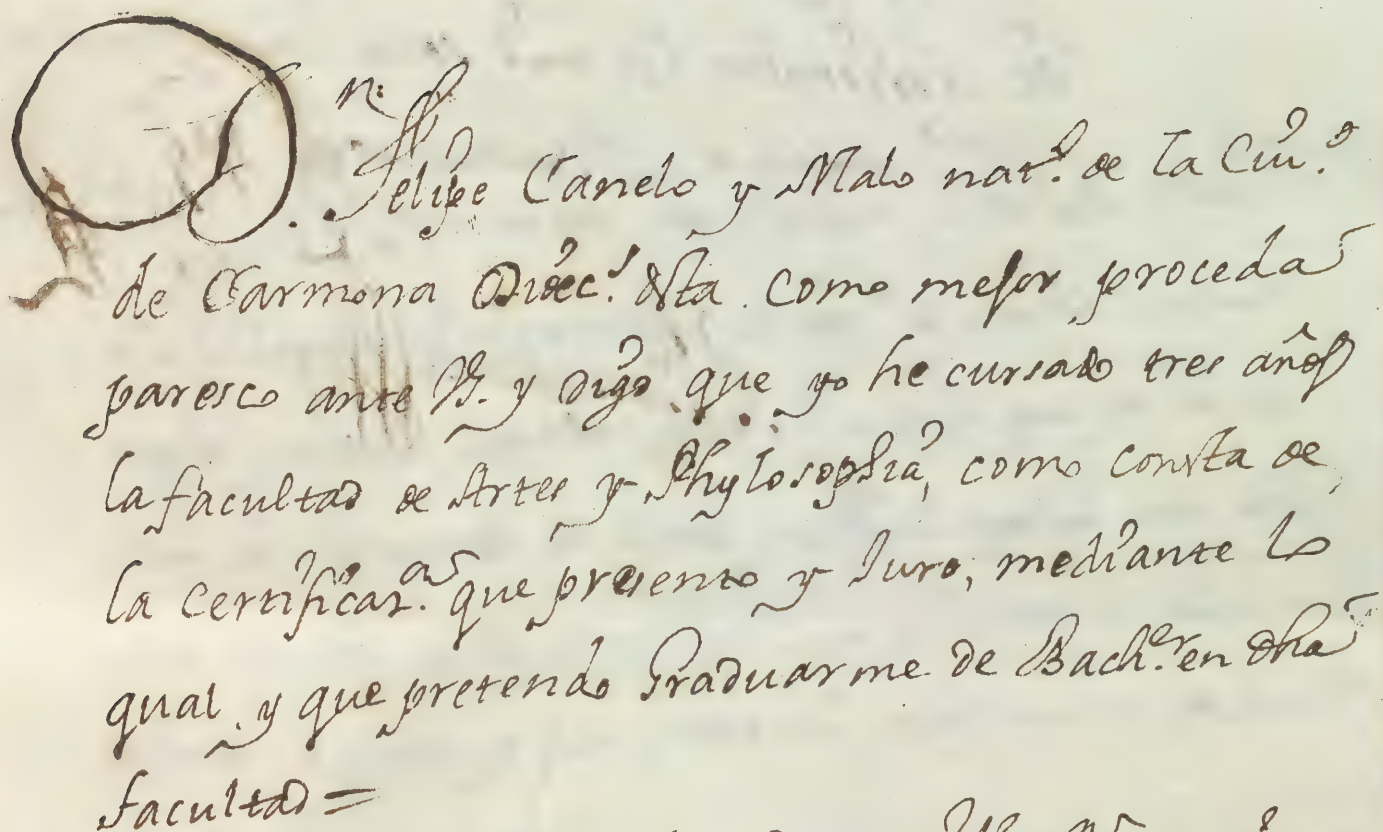 Dn. Felipe Canelo y Malo nat.l de la Ciu.d
de Carmona Diôec.s dsta como mejor proceda
paresco ante VS. y digo que yo he cursado tres años
la facultad de Artes y Phylosophia, como consta de
la certificaz.on que presento y Juro, mediante lo
qual y que pretendo Graduarme de Bach.er en dha
facultad =